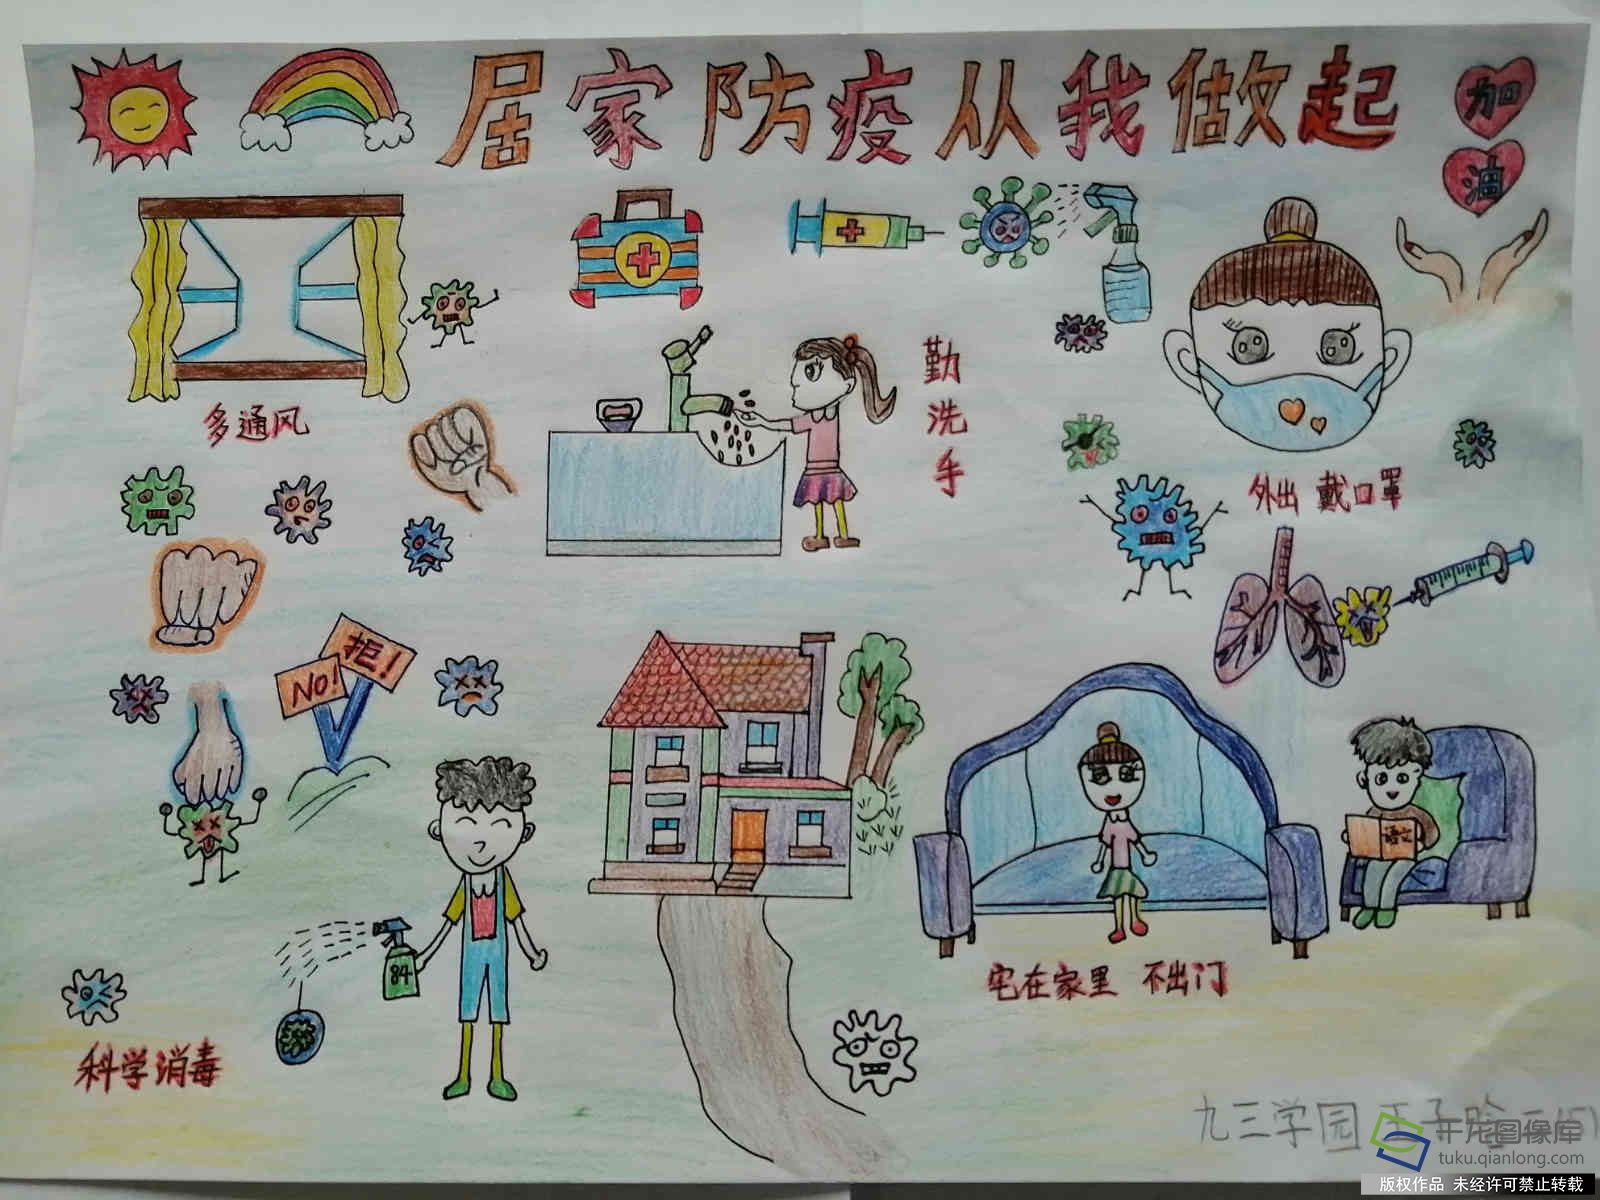 居家防疫从我做起
加
油
多通风
勤
洗
手
外出 戴口罩
拒!
NO!
语文
84
宅在家里 不出门
科学消毒
九三学园 王子
千龙图像库
tuku.qianlong.com
版权作品 未经许可禁止转载